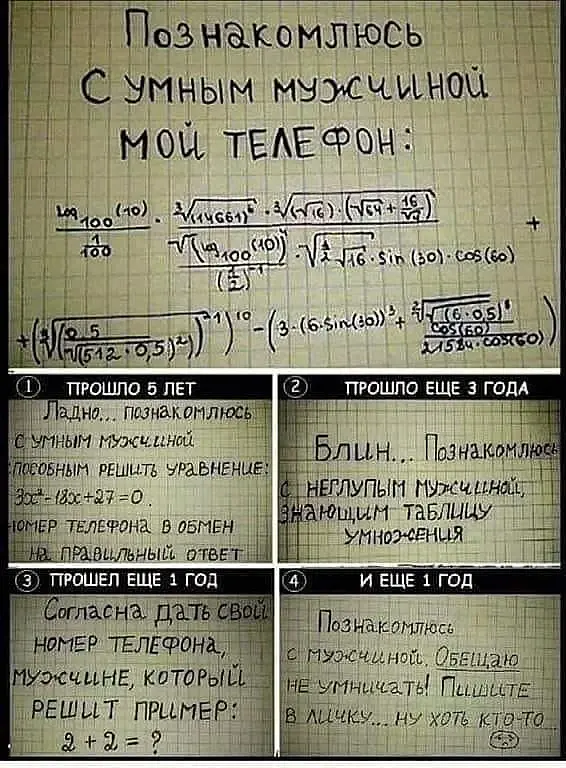 Познакомлюсь
с умным мужчиной
мой телефон:
log₁₀₀(10) / (1/100) · ∛(14661)⁶ · ∛(√16)·(√64 + 16/√
√(log₁₀₀(10))
(1/2)⁻¹
√16 · sin(30) · cos(60)
+
0,5
(512 · 0,5)²
)¹⁰ − (3·(6·sin(30))³ +
(6·0,5)
cos(60)
21584·cos(60)
)
① ПРОШЛО 5 ЛЕТ
Ладно... познакомлюсь
с умным мужчиной
способным решить уравнение:
3x²-18x+27=0.
номер телефона в обмен
на правильный ответ
② ПРОШЛО ЕЩЕ 3 ГОДА
Блин... Познакомлюсь
с неглупым мужчиной,
знающим таблицу
умножения
③ ПРОШЕЛ ЕЩЕ 1 ГОД
Согласна дать свой
номер телефона,
мужчине, который
решит пример:
2 + 2 = ?
④ И ЕЩЕ 1 ГОД
Познакомлюсь
с мужчиной. Обещаю
не умничать! Пишите
в личку... ну хоть кто-то...